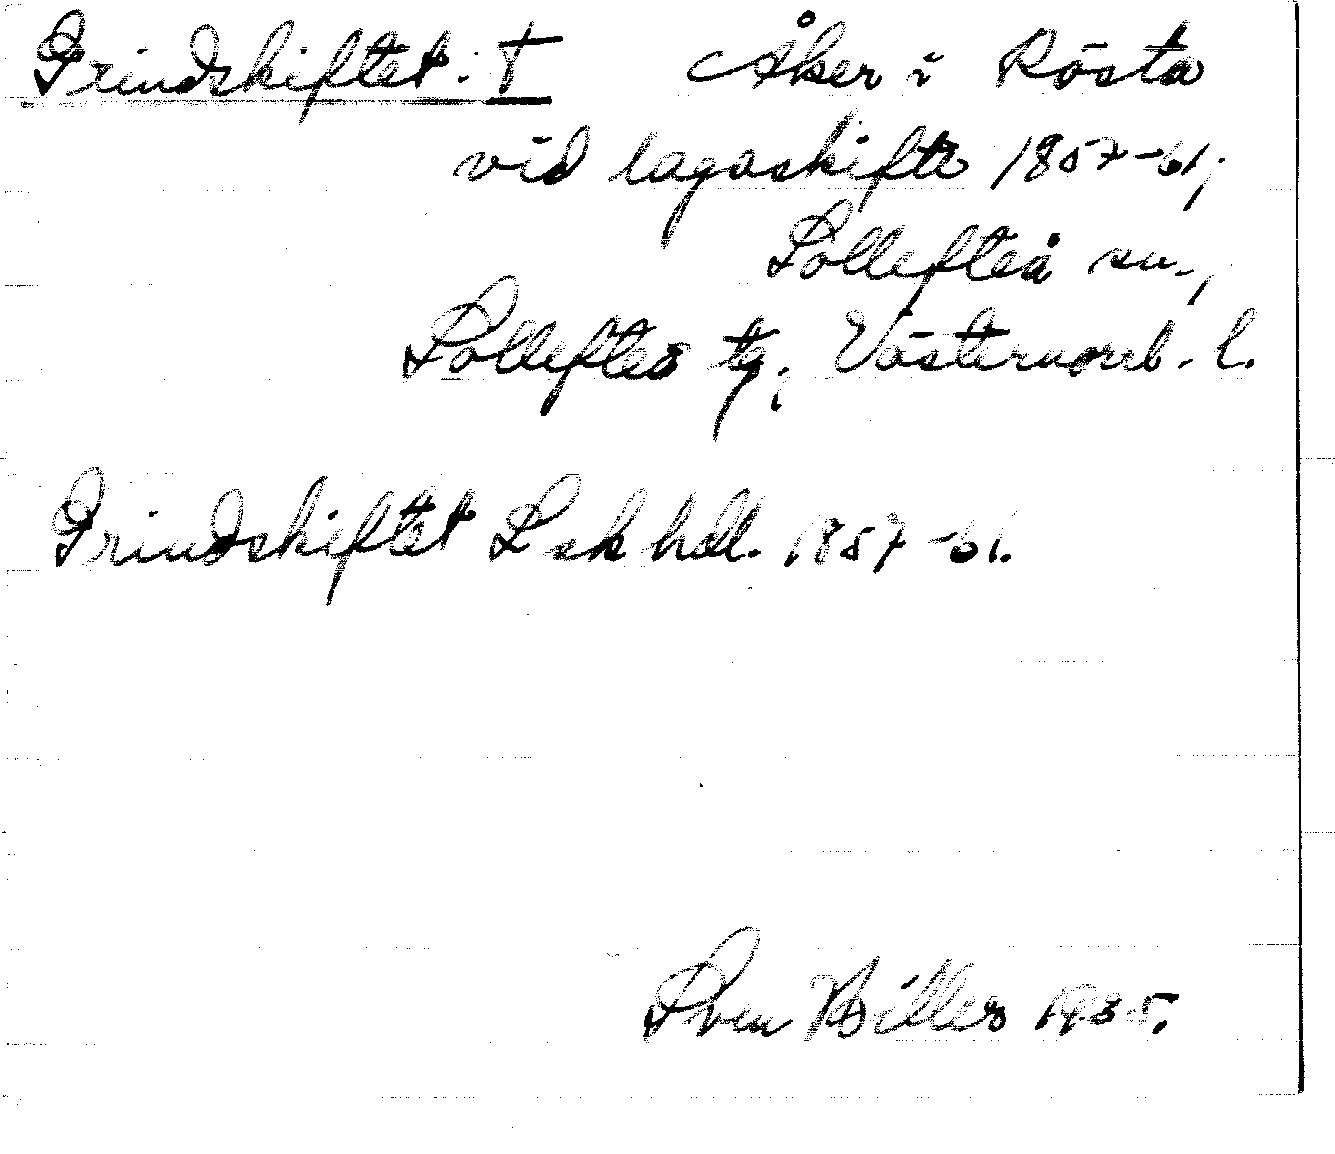 Grindskiftet. † Åker i Rösta
vid lagaskifte 1857-61,
Sollefteå sn.,
Sollefteå tg; Västernorrl. l.
Grindskiftet L sk hdl. 1857-61.
Sven 1935.